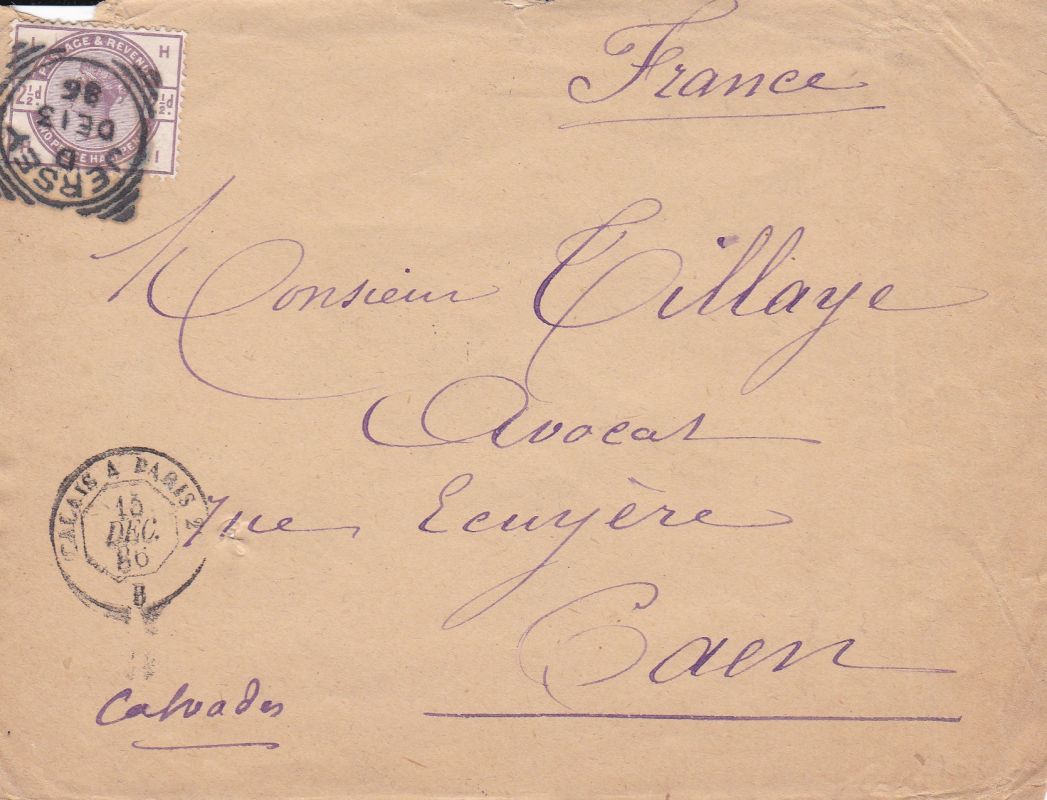 France
POSTAGE & REVENUE
H
2½d.
½d.
TWO PENCE HALF PENNY
I
JERSEY
D
DE 13
86
Monsieur Tillaye
Avocat
rue Ecuyère
Caen
CALAIS A PARIS 2
15
DEC.
86
B
Calvados